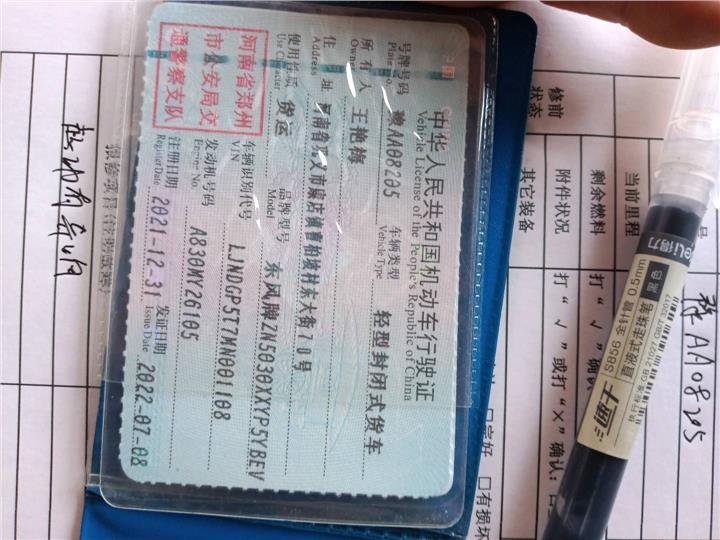 中华人民共和国机动车行驶证
Vehicle License of the People's Republic of China
号牌号码 豫AA08205 车辆类型 轻型封闭式货车
Plate No. Vehicle Type
所有人 王艳梅
Owner
住址
Address
使用性质 货运 品牌型号 东风牌ZN5030XXYP5YBEV
Use Character Model
河南省郑州
市公安局交
通警察支队
车辆识别代号 LJNDGP5T7MN001108
VIN
发动机号码 A830MY26105
Engine No.
注册日期 2021-12-31 发证日期 2022-07-08
Register Date Issue Date
号
AA08205
当前里程
剩余燃料 打“√”确认
附件状况 打“√”或打“×”确认:
其它装备
修前
状态
□完好 □有损坏
起动有异响
得力
黑色
S856 全针管 0.5mm
直液式走珠笔